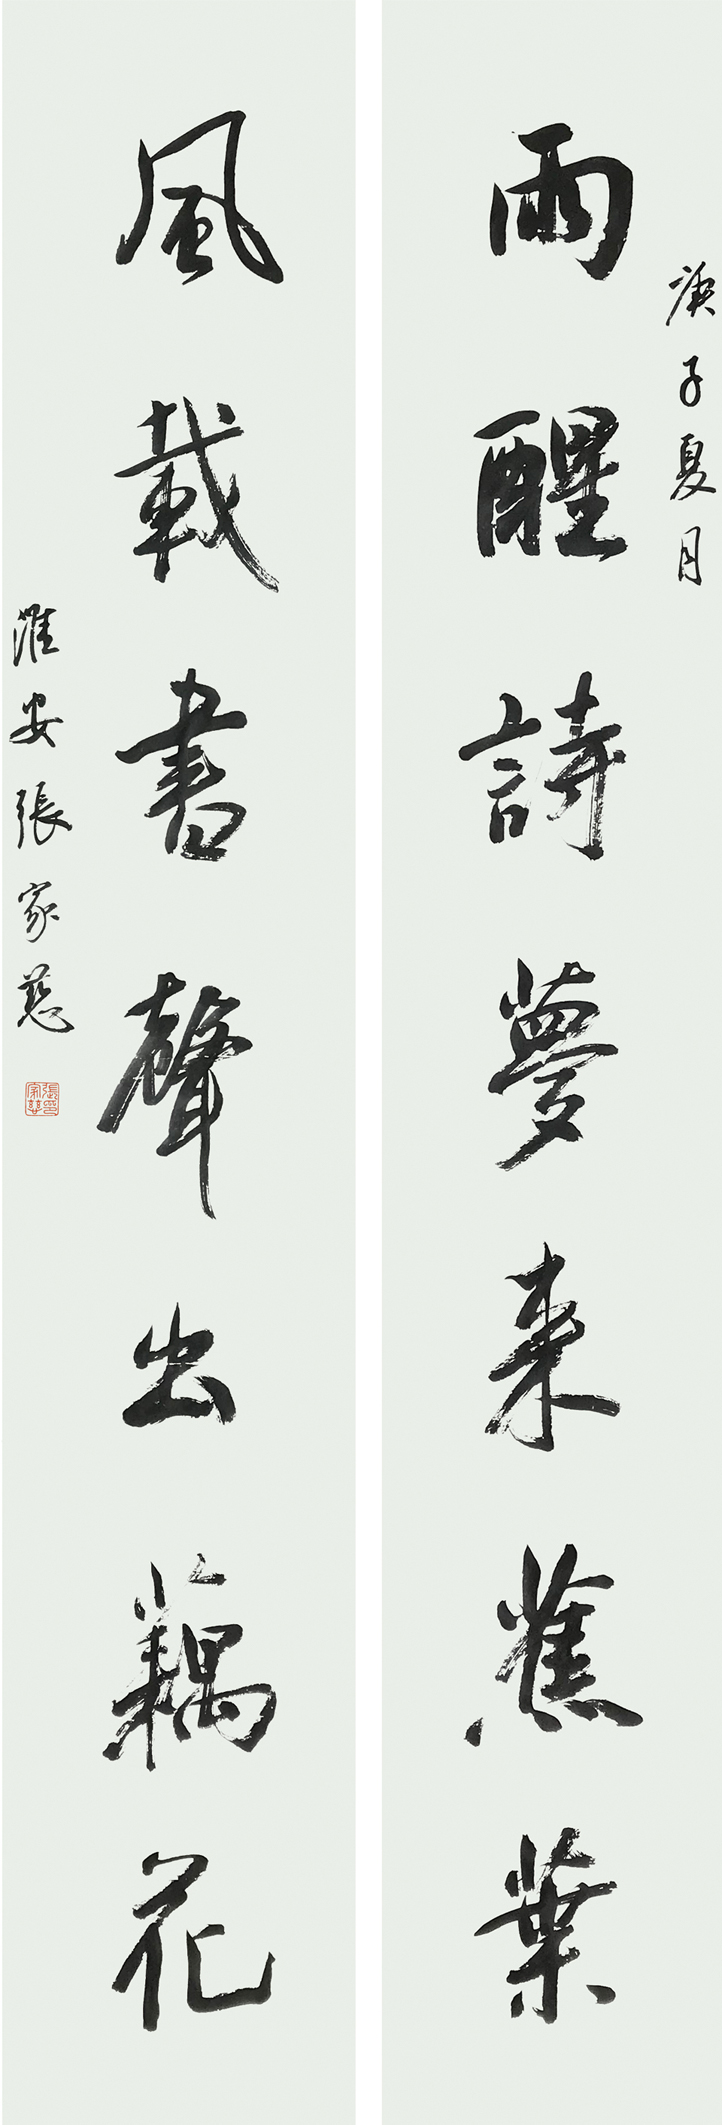 庚子夏月
雨醒詩夢来蕉葉
風載書聲出藕花
淮安張家慈
張家慈印